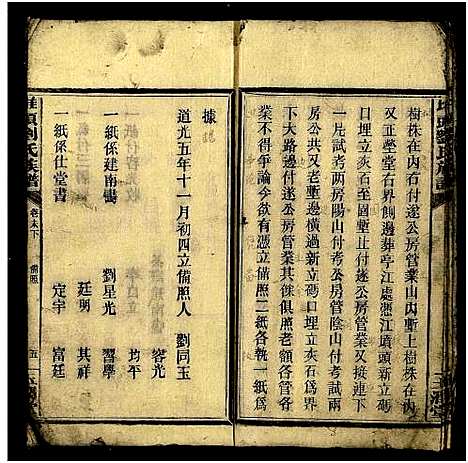 樹株在內右付遂公房管業山內塹上樹株在內
又正塋堂右界劍邊葬亭江處憑江墳頭新立碼
口埋立夾石至固塹止付遂公房管業其又接連下
一片試考兩房陽山付考公房管陰山付考試兩
房公共又老塹邊橫過新立碼口埋立夾石為界
下大路邊付遂公房管業其餘俱照老額各管各
業不得混論今欲有憑立備照二紙各執一紙為
據
道光五年十一月初四立備照人 劉同玉
容光
劉星光 均平
一紙係建南書 習學
廷明 其祥
一紙係仕堂書 定宇 富廷
劉氏族譜
卷末下
備照
五